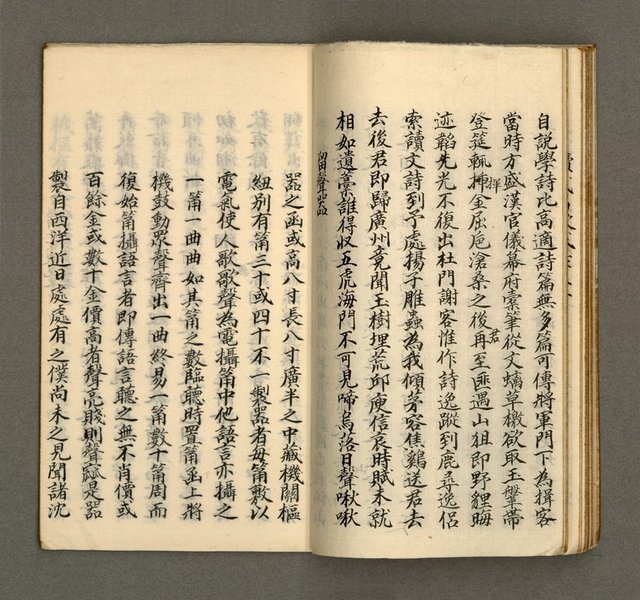 自說學詩比高適詩篇無多篇可傳將軍門下為揖客
當時方盛漢官儀幕府寮筆從文螭草檄欲取玉鞶帶
登筵輒揮金屈卮滄桑之後再至匪遇山狙即野貍晦
迹韜先光不復出杜門謝客惟作詩逸蹤到鹿尋逸侶
索讀文詩到予處揚子雕蟲為我傾茅容焦鷄送君去
去後君即歸廣州竟聞玉樹埋荒邱庾信哀時賦未就
相如遺藁誰得收五虎海門不可見啼烏落日聲啾啾
留聲器
器之函或高八寸長八寸廣半之中藏機關樞
紐別有筩三十或四十不一製器者每筩敷以
電氣使人歌歌聲為電攝筩中他語言亦攝之
一筩一曲曲如其筩之數臨聽時置筩函上將
機鼓動眾聲齊出一曲終易一筩數十筩周而
復始筩攝語言者即傳語言聽之無不肖價或
百餘金或數十金價高者聲亮賤則聲窳是器
製自西洋近日處處有之僕尚未之見聞諸沈